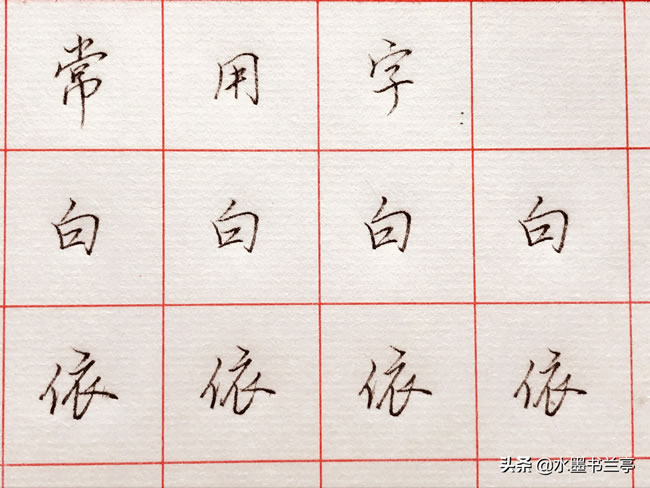 常用字:
白白白白
依依依依
头条 @水墨书兰亭